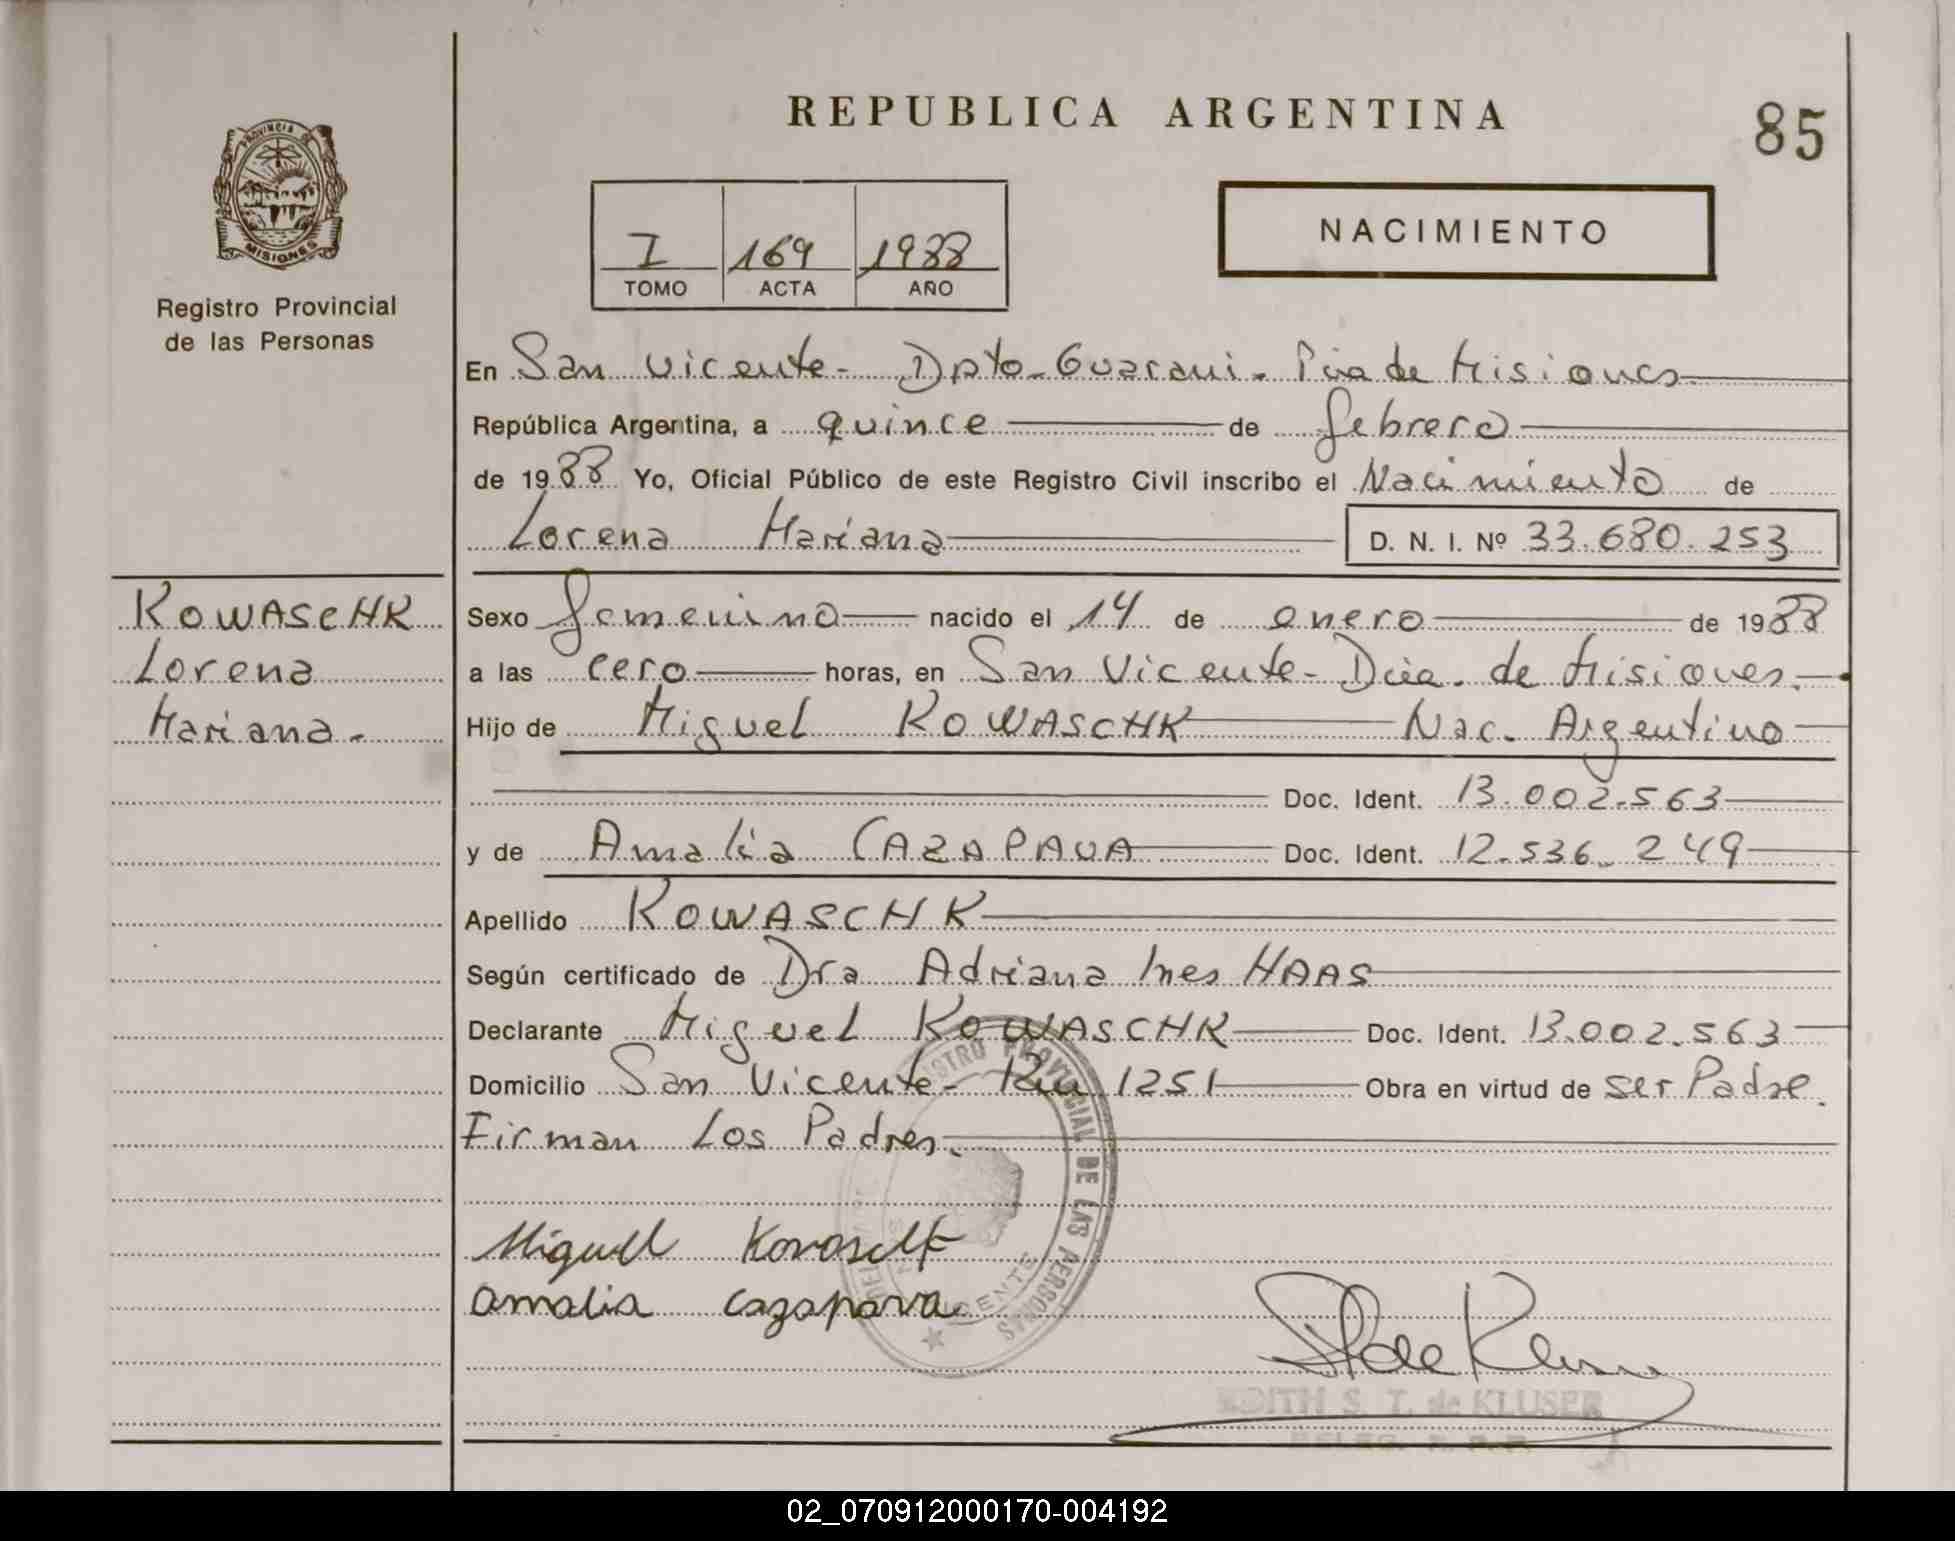 REPUBLICA ARGENTINA
85
PROVINCIA DE
MISIONES
Registro Provincial
de las Personas
NACIMIENTO
I 169 1988
TOMO ACTA AÑO
En San Vicente - Dpto. Guarani. Pcia de Misiones
República Argentina, a quince de febrero
de 1988 Yo, Oficial Público de este Registro Civil inscribo el Nacimiento de
Lorena Mariana D. N. I. Nº 33.680.253
KOWASCHK
Lorena
Mariana.
Sexo femenino nacido el 14 de enero de 1988
a las cero horas, en San Vicente - Pcia. de Misiones.
Hijo de Miguel KOWASCHK Nac. Argentino
Doc. Ident. 13.002.563
y de Amalia CAZAPAVA Doc. Ident. 12.536.249
Apellido KOWASCHK
Según certificado de Dra Adriana Ines HAAS
Declarante Miguel KOWASCHK Doc. Ident. 13.002.563
Domicilio San Vicente - Km 1251 Obra en virtud de ser Padre.
Firman Los Padres.
REGISTRO PROVINCIAL DE LAS PERSONAS
VICENTE
Miguel
Amalia Cazapava.
de Kluser
EDITH S. T. de KLUSER
DELEG. R. P. P.
02_070912000170-004192